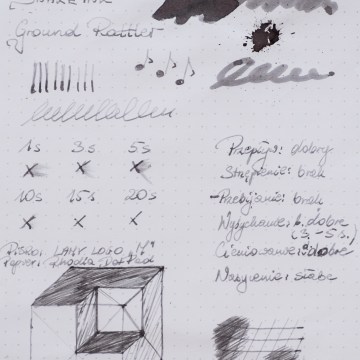 Ground Rattler
1s 3s 5s
10s 15s 20s
Przepływ: dobry
Strzępienie: brak
Przebijanie: brak
Wysychanie: b. dobre
(3-5s.)
Cieniowanie: dobre
Nasycenie: słabe
Pióro: LAMY LOGO
Papier: Rhodia Dot Pad